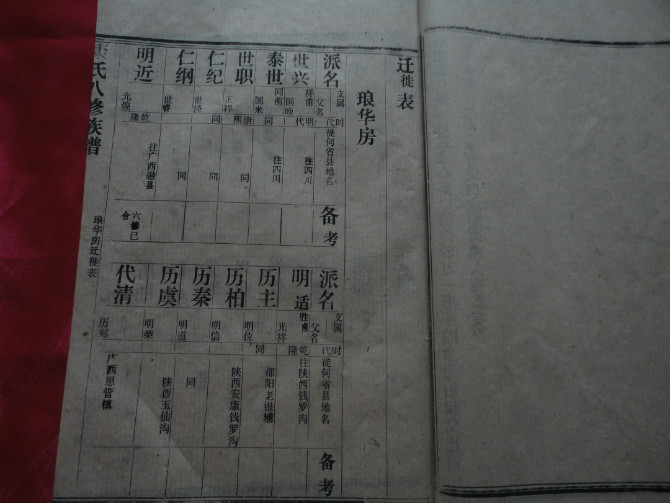 迁徙表
琅华房
派名 世兴 泰世 世职 仁纪 仁纲 明近
支属父名 祥甫 同甫 国晚 国米 正祥 世泾 世睿 光煌
时代 明代 同 康熙 同 乾隆
徙何省县地名 往四川 往四川 同 同 同 往广西融县
备考 六修已合
派名 明适 历主 历柏 历秦 历虞 代清
支属父名 胜甫 光祥 明位 明信 明道 明荣 历郊
时代 乾隆 同
徙何省县地名 往陕西钱罗沟 郿阳老银铺 陕西安康钱罗沟 同 陕西玉仙沟 广西思管镇
备考
氏八修族谱
琅华房迁徙表